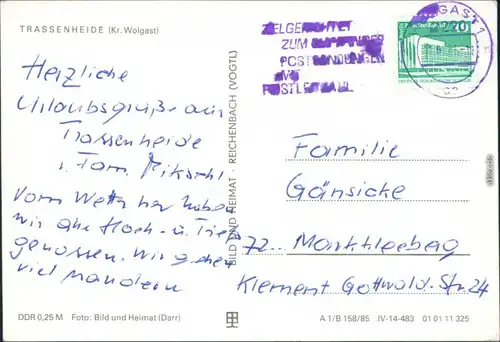 TRASSENHEIDE (Kr. Wolgast)
Herzliche
Urlaubsgrüße aus
Trassenheide
Vom Wetter her haben
wir alle Hoch- u. Tiefs
genossen. Wir gehen
viel wandern
DDR 0,25 M Foto: Bild und Heimat (Darr)
BILD UND HEIMAT · REICHENBACH (VOGTL)
ZIELGERICHTET
ZUM
POSTSENDUNGEN
POSTLEITZAHL
GAST 1
20
Familie
Gänsicke
72.. Markkleeberg
Klement Gottwald-Str. 24
A 1/B 158/85 IV-14-483 01 01 11 325